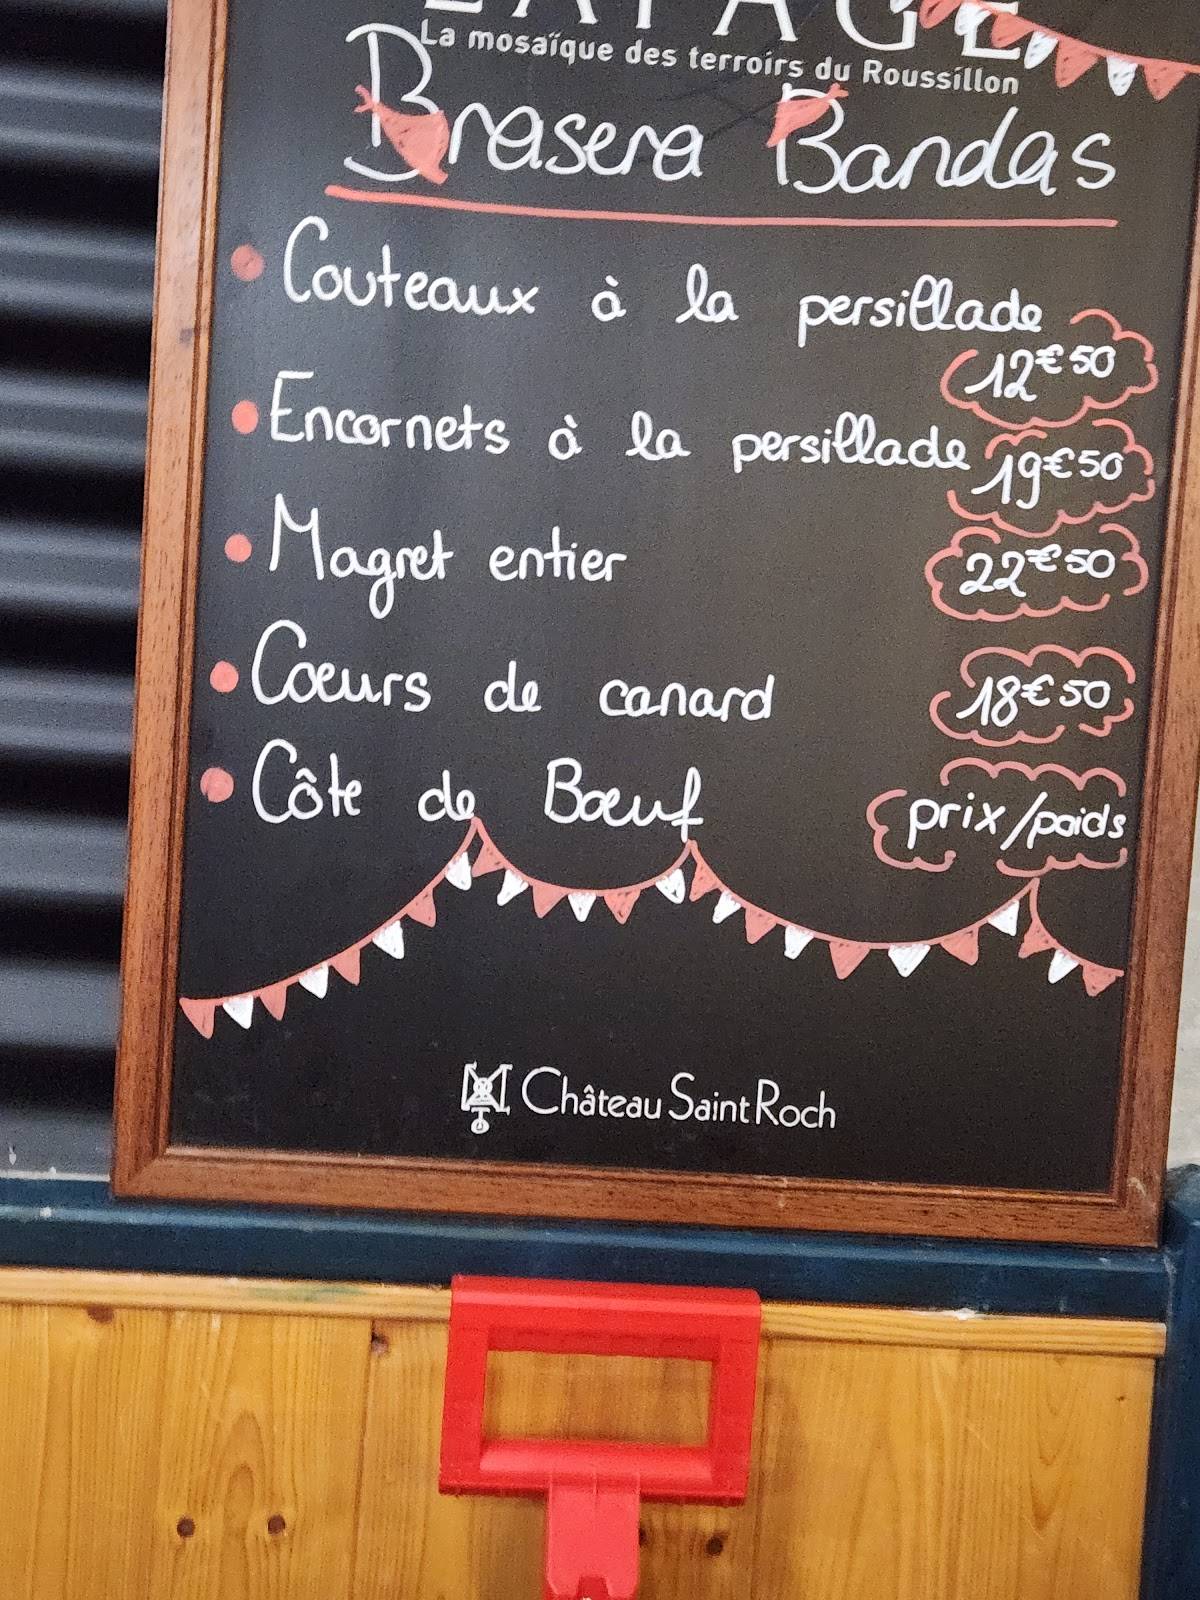 La mosaïque des terroirs du Roussillon
Brasera Bandas
Couteaux à la persillade
12€50
Encornets à la persillade 19€50
Magret entier 22€50
Cœurs de canard 18€50
Côte de Bœuf prix/poids
Château Saint Roch